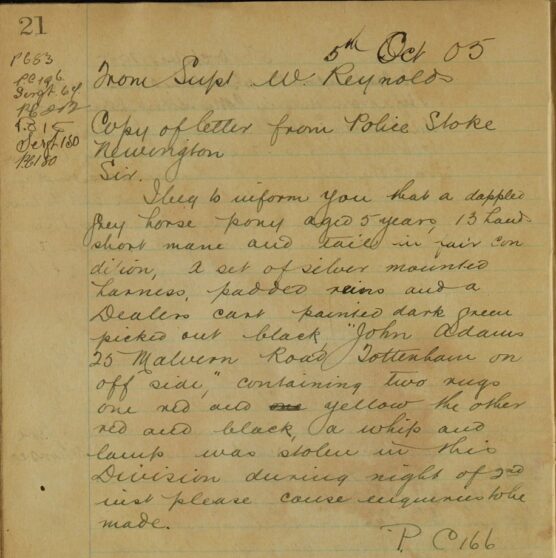 21
5th Oct 05
P653
PC196
Sergt 64
Sergt 130
PC180
From Supt W. Reynolds
Copy of letter from Police Stoke
Newington
Sir.
I beg to inform you that a dappled
grey horse pony aged 5 years, 13 hands
short mane and tail in fair con
dition, A set of silver mounted
harness, padded reins and a
Dealers cart painted dark green
picked out black, "John Adams
25 Malvern Road Tottenham on
off side," containing two rugs
one red and yellow the other
red and black, a whip and
lamp was stolen in this
Division during night of 2nd
inst please cause enquiries to be
made.
P.C 166